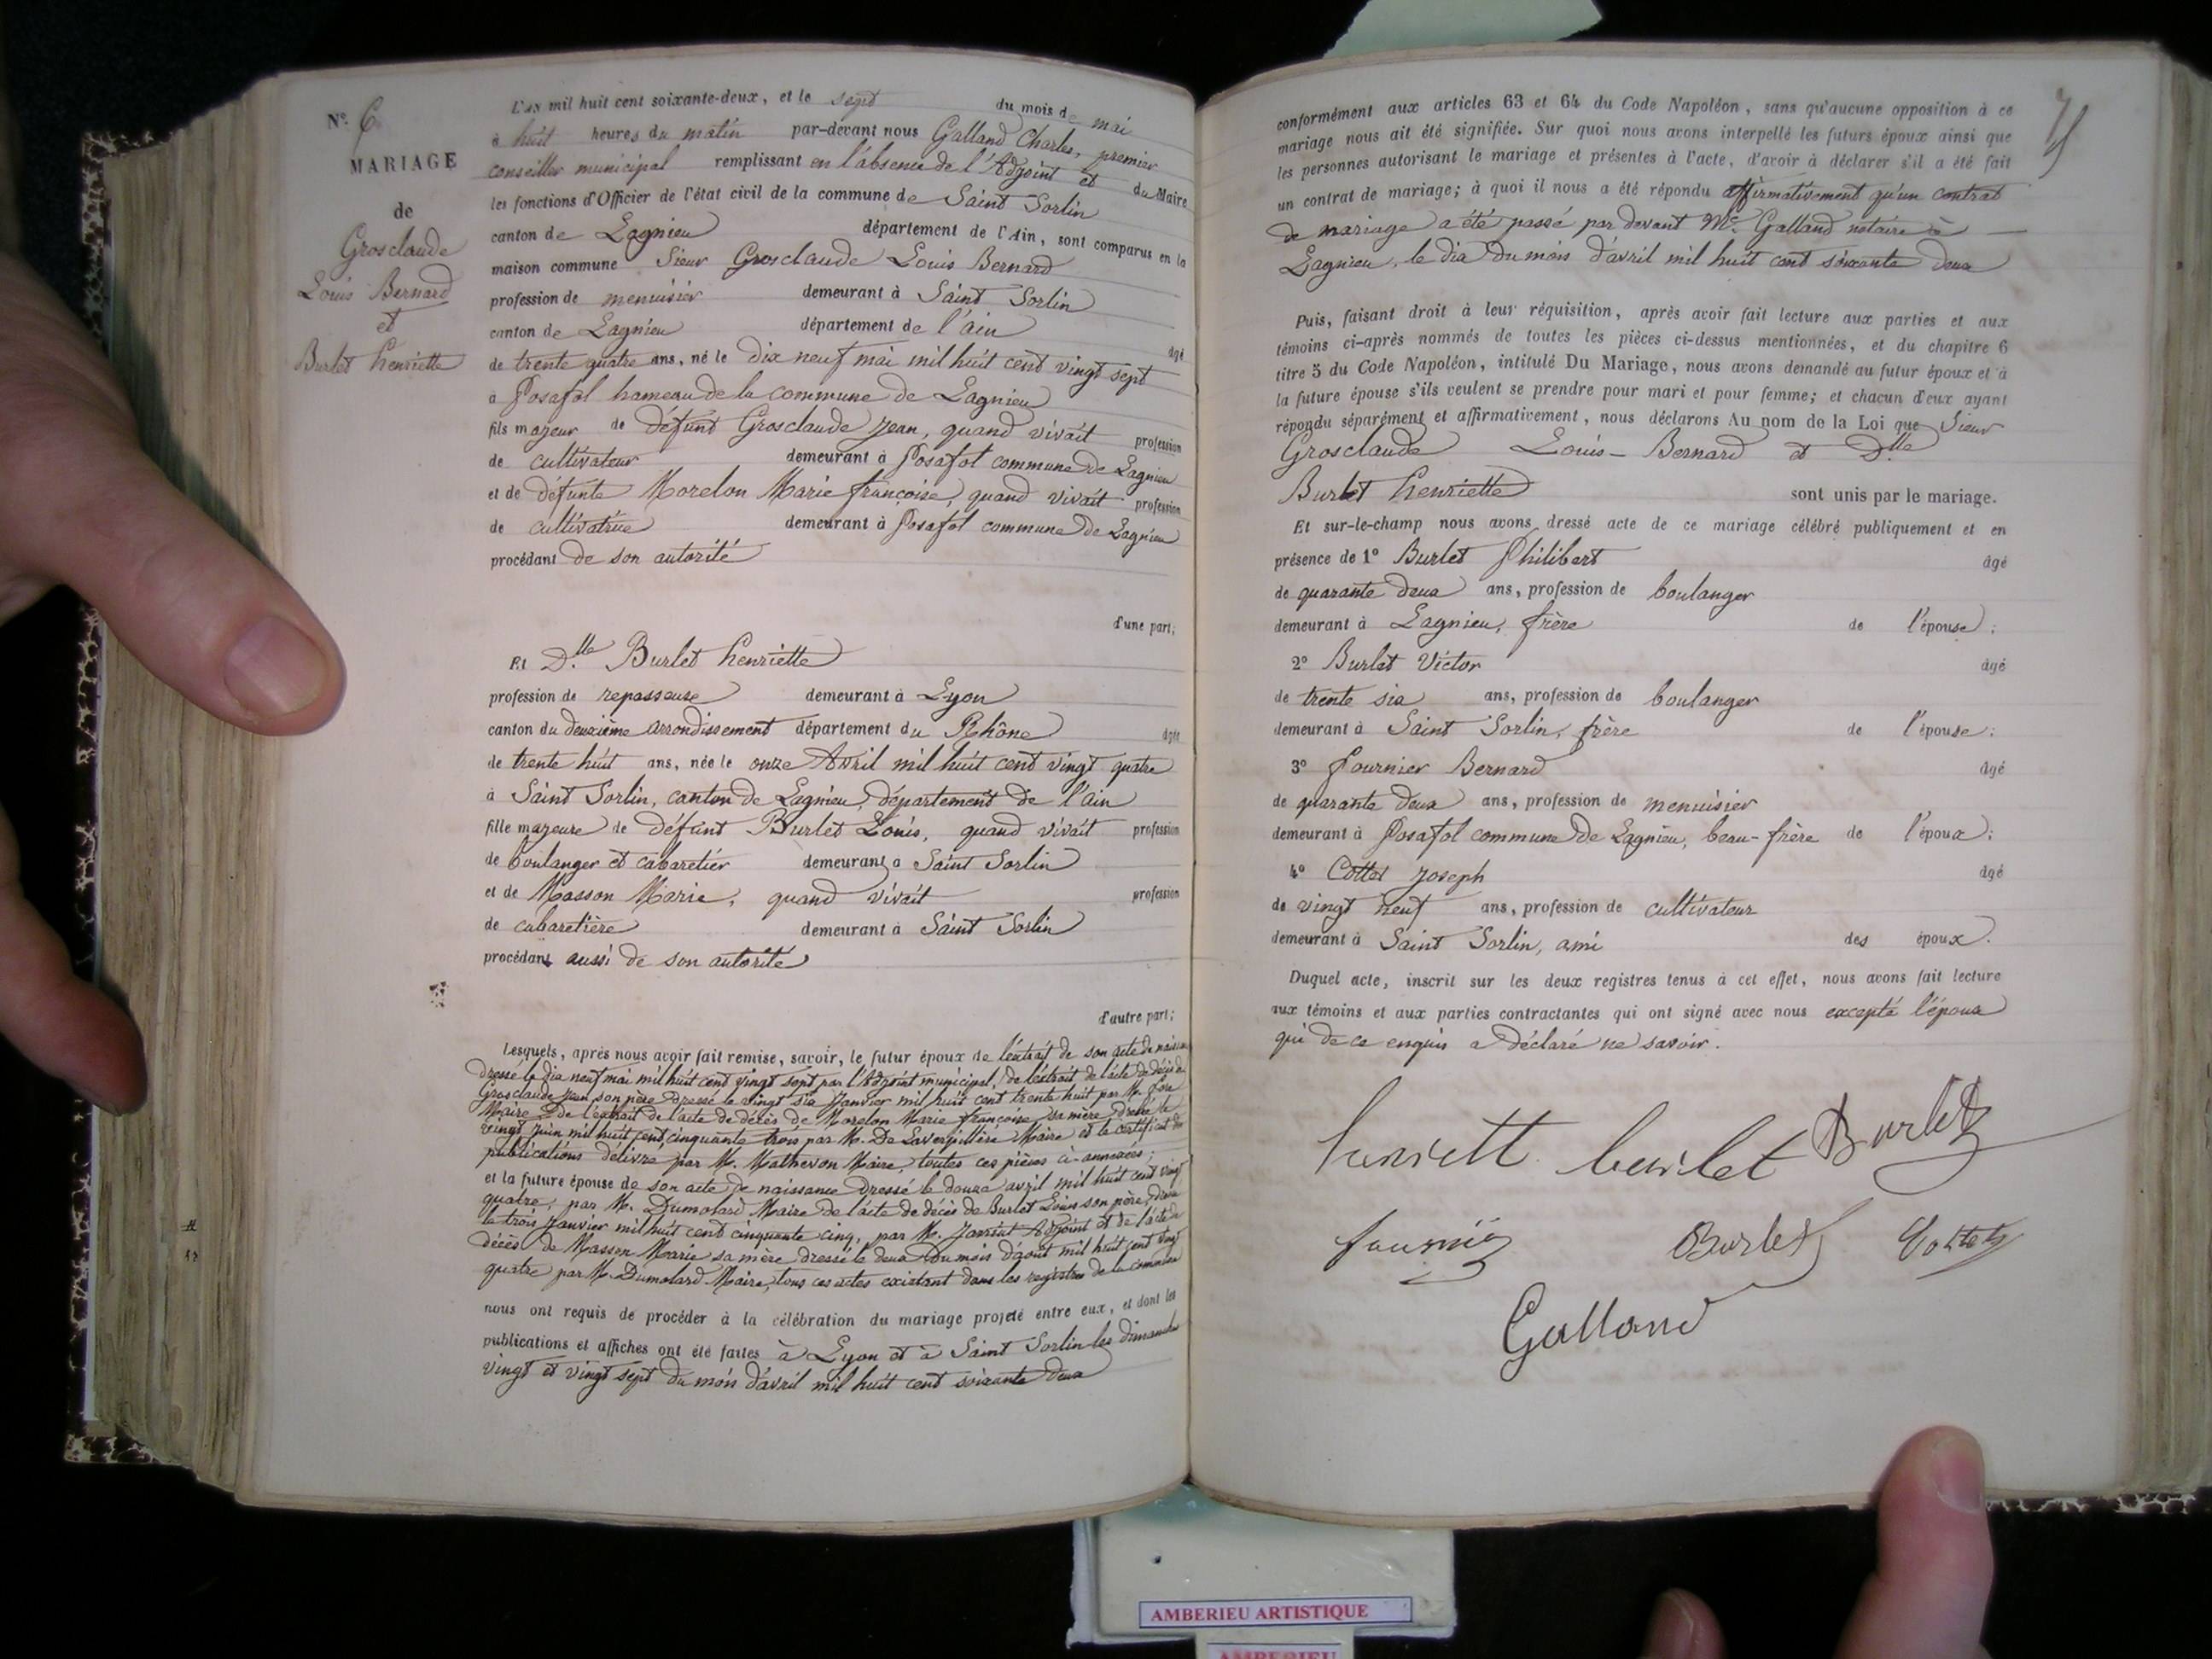 N.º 6
MARIAGE
de
Grosclaude
Louis Bernard
et
Burlet henriette
L'an mil huit cent soixante-deux, et le sept du mois de mai
à huit heures du matin par-devant nous Galland Charles, premier
conseiller municipal remplissant en l'absence de l'Adjoint et du Maire
les fonctions d'Officier de l'état civil de la commune de Saint Sorlin
canton de Lagnieu département de l'Ain, sont comparus en la
maison commune Sieur Grosclaude Louis Bernard
profession de menuisier demeurant à Saint Sorlin
canton de Lagnieu département de l'ain âgé
de trente quatre ans, né le dix neuf mai mil huit cent vingt sept
à Posafol hameau de la commune de Lagnieu
fils majeur de défunt Grosclaude Jean, quand vivait profession
de cultivateur demeurant à Posafol commune de Lagnieu
et de défunte Morelon Marie françoise, quand vivait profession
de cultivatrice demeurant à Posafol commune de Lagnieu
procédant de son autorité
d'une part;
Et D.lle Burlet henriette
profession de repasseuse demeurant à Lyon
canton du deuxième arrondissement département du Rhône âgée
de trente huit ans, née le onze Avril mil huit cent vingt quatre
à Saint Sorlin, canton de Lagnieu, département de l'ain
fille majeure de défunt Burlet Louis, quand vivait profession
de boulanger et cabaretier demeurant à Saint Sorlin
et de Masson Marie, quand vivait profession
de cabaretière demeurant à Saint Sorlin
procédant aussi de son autorité
d'autre part;
Lesquels, après nous avoir fait remise, savoir, le futur époux de l'extrait de son acte de naissance
dressé le dix neuf mai mil huit cent vingt sept par l'Adjoint municipal, de l'extrait de l'acte de décès de
Grosclaude Jean son père dressé le vingt six Janvier mil huit cent trente huit par M.
Maire de l'extrait de l'acte de décès de Morelon Marie françoise sa mère dressé le
vingt juin mil huit cent cinquante trois par M. De Maire et le certificat de
publications délivré par M. Mathevon Maire, toutes ces pièces ci-annexées;
et la future épouse de son acte de naissance dressé le douze avril mil huit cent vingt
quatre, par M. Dumolard Maire de l'acte de décès de Burlet Louis son père, dressé
le trois Janvier mil huit cent cinquante cinq, par M. Adjoint et de l'acte de
décès de Masson Marie sa mère dressé le deux du mois d'août mil huit cent vingt
quatre par M. Dumolard Maire, tous ces actes existant dans les registres de la commune
nous ont requis de procéder à la célébration du mariage projeté entre eux, et dont les
publications et affiches ont été faites à Lyon et à Saint Sorlin les dimanches
vingt et vingt sept du mois d'avril mil huit cent soixante deux
conformément aux articles 63 et 64 du Code Napoléon, sans qu'aucune opposition à ce
mariage nous ait été signifiée. Sur quoi nous avons interpellé les futurs époux ainsi que
les personnes autorisant le mariage et présentes à l'acte, d'avoir à déclarer s'il a été fait
un contrat de mariage; à quoi il nous a été répondu affirmativement qu'un contrat
de mariage a été passé par devant Me Galland notaire à
Lagnieu, le dix du mois d'avril mil huit cent soixante deux
Puis, faisant droit à leur réquisition, après avoir fait lecture aux parties et aux
témoins ci-après nommés de toutes les pièces ci-dessus mentionnées, et du chapitre 6
titre 5 du Code Napoléon, intitulé Du Mariage, nous avons demandé au futur époux et à
la future épouse s'ils veulent se prendre pour mari et pour femme; et chacun d'eux ayant
répondu séparément et affirmativement, nous déclarons Au nom de la Loi que Sieur
Grosclaude Louis-Bernard et Dlle
Burlet henriette sont unis par le mariage.
Et sur-le-champ nous avons dressé acte de ce mariage célébré publiquement et en
présence de 1º Burlet Philibert âgé
de quarante deux ans, profession de boulanger
demeurant à Lagnieu, frère de l'épouse;
2º Burlet Victor âgé
de trente six ans, profession de boulanger
demeurant à Saint Sorlin, frère de l'épouse;
3º fournier Bernard âgé
de quarante deux ans, profession de menuisier
demeurant à Posafol commune de Lagnieu, beau-frère de l'époux;
4º Cottet Joseph âgé
de vingt neuf ans, profession de cultivateur
demeurant à Saint Sorlin, ami des époux.
Duquel acte, inscrit sur les deux registres tenus à cet effet, nous avons fait lecture
aux témoins et aux parties contractantes qui ont signé avec nous excepté l'époux
qui de ce enquis a déclaré ne savoir.
henriett burlet Burlet
fournier Burlet Cottet
Galland
AMBERIEU ARTISTIQUE
AMBERIEU